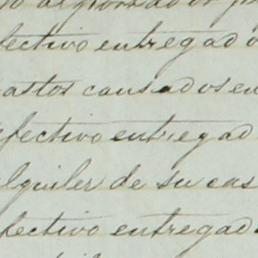 efectivo entregado
gastos causados en
efectivo entregad
alquiler de su cas
efectivo entregad